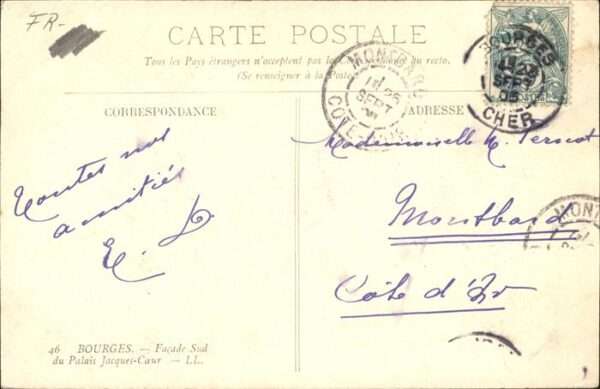 FR-
CARTE POSTALE
Tous les Pays étrangers n'acceptent pas la Correspondance au recto.
(Se renseigner à la Poste)
BOURGES
25
SEPT
05
CHER
MONTBARD
25
SEPT
CÔTE-D'OR
CORRESPONDANCE
ADRESSE
Toutes nos
amitiés
Mademoiselle
Montbard
Côte d'Or
MONT
46 BOURGES. — Façade Sud
du Palais Jacques-Cœur — LL.